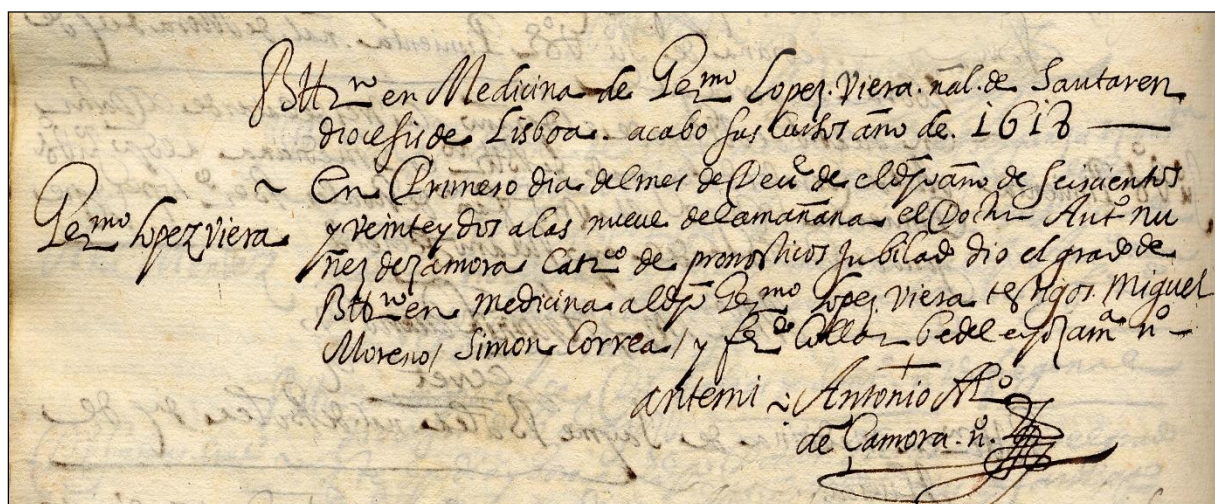 BHr en Medicina de Germo Lopez. Viera. nal. de Santaren
diocesis de Lisboa. acabo sus Cursos año de. 1618
Germo Lopez viera
~ En Primero dia del mes de Decie de el dho año de seiscientos
y veinte y dos a las nueve de la mañana el Doctr Anto nu
ñez de zamora Catco de pronosticos Jubilado dio el grado de
BHr en medicina al dho Germo Lopez Viera testigos. Miguel
Moreno / Simon Correa / y ferdo Collaz bedel e yo zama no
antemi ~ Antonio Alo
de Çamora. no.